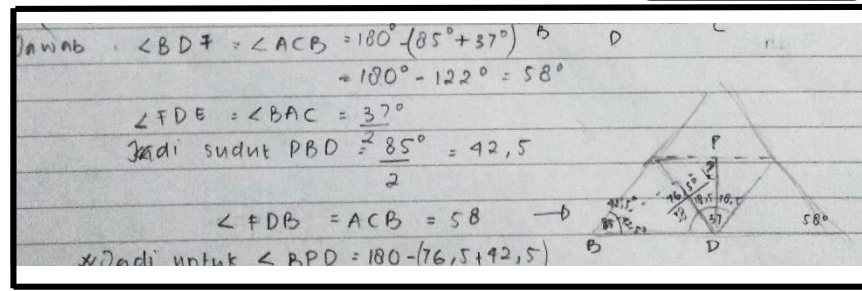 Jawab : ∠BDF = ∠ACB = 180° - (85° + 37°) B D C
= 180° - 122° = 58°
∠FDE = ∠BAC = 37°
Jadi sudut PBD = 85°/2 = 42,5
∠FDB = ACB = 58
Jadi untuk ∠BPD = 180 - (76,5 + 42,5)
P
?
76,5°
18,5 18,5
42,5°
85
37
58°
B D